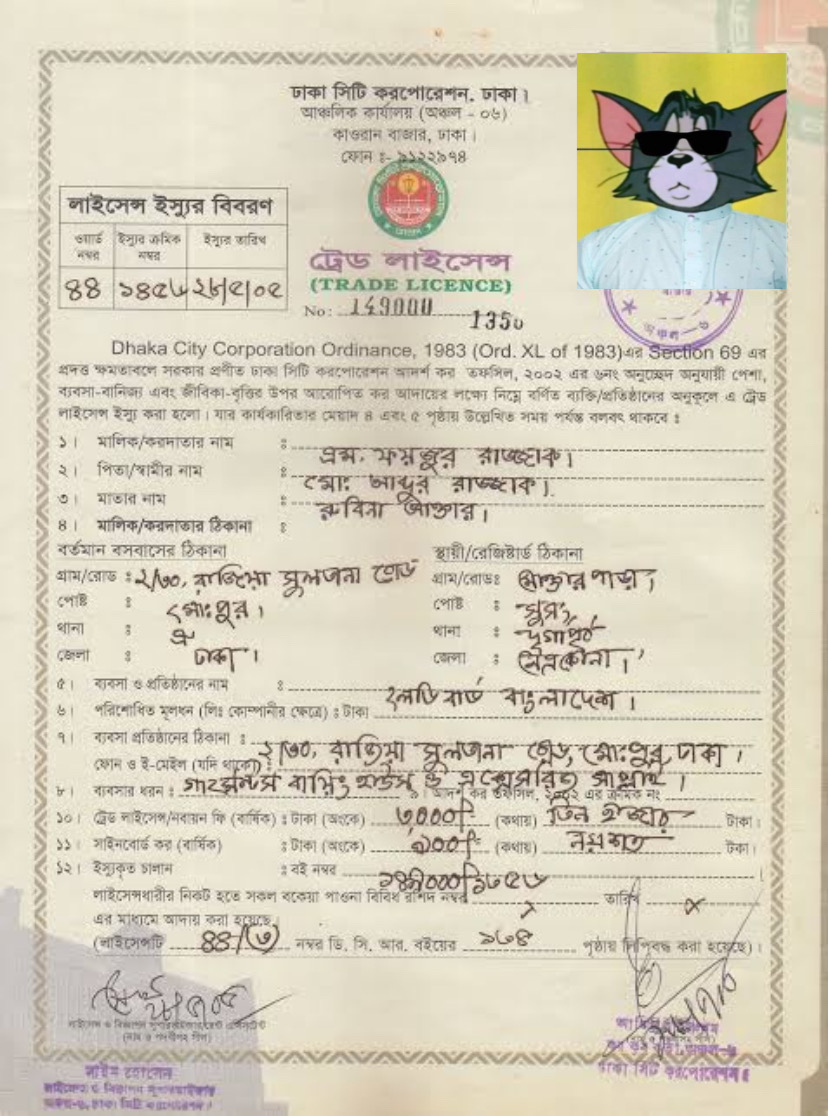 ঢাকা সিটি করপোরেশন. ঢাকা।
আঞ্চলিক কার্যালয় (অঞ্চল - ০৬)
কাওরান বাজার, ঢাকা।
ফোন ঃ- ৯১২২৯৭৪
লাইসেন্স ইস্যুর বিবরণ
ওয়ার্ড নম্বর ইস্যুর ক্রমিক নম্বর ইস্যুর তারিখ
৪৪ ১৪৫৬ ২৮/৫/০৫
ট্রেড লাইসেন্স
(TRADE LICENCE)
No: 149000
1350
অঞ্চল-৬
Dhaka City Corporation Ordinance, 1983 (Ord. XL of 1983)এর Section 69 এর
প্রদত্ত ক্ষমতাবলে সরকার প্রণীত ঢাকা সিটি করপোরেশন আদর্শ কর তফসিল, ২০০২ এর ৬নং অনুচ্ছেদ অনুযায়ী পেশা,
ব্যবসা-বানিজ্য এবং জীবিকা-বৃত্তির উপর আরোপিত কর আদায়ের লক্ষ্যে নিম্নে বর্ণিত ব্যক্তি/প্রতিষ্ঠানের অনুকূলে এ ট্রেড
লাইসেন্স ইস্যু করা হলো। যার কার্যকারিতার মেয়াদ ৪ এবং ৫ পৃষ্ঠায় উল্লেখিত সময় পর্যন্ত বলবৎ থাকবে ঃ
১। মালিক/করদাতার নাম ঃ এম. ফয়জুর রাজ্জাক।
২। পিতা/স্বামীর নাম ঃ মোঃ আব্দুর রাজ্জাক।
৩। মাতার নাম ঃ রুবিনা আক্তার।
৪। মালিক/করদাতার ঠিকানা ঃ
বর্তমান বসবাসের ঠিকানা স্থায়ী/রেজিষ্টার্ড ঠিকানা
গ্রাম/রোড ঃ ২/৩০, রাজিয়া সুলতানা রোড গ্রাম/রোডঃ মোক্তার পাড়া,
পোষ্ট ঃ মোঃপুর। পোষ্ট ঃ
থানা ঃ ঐ থানা ঃ দুর্গাপুর
জেলা ঃ ঢাকা। জেলা ঃ নেত্রকোনা।
৫। ব্যবসা ও প্রতিষ্ঠানের নাম ঃ বাংলাদেশ।
৬। পরিশোধিত মূলধন (লিঃ কোম্পানীর ক্ষেত্রে) ঃ টাকা
৭। ব্যবসা প্রতিষ্ঠানের ঠিকানা ঃ ২/৩০, রাজিয়া সুলতানা রোড, মোঃপুর, ঢাকা।
ফোন ও ই-মেইল (যদি থাকে) ঃ
৮। ব্যবসার ধরন ঃ গার্মেন্টস বায়িং হাউস ও এক্সেসরিজ সাপ্লাই।
৯। আদর্শ কর তফসিল, ২০০২ এর ক্রমিক নং
১০। ট্রেড লাইসেন্স/নবায়ন ফি (বার্ষিক) ঃ টাকা (অংকে) ৩,০০০/- (কথায়) তিন হাজার টাকা।
১১। সাইনবোর্ড কর (বার্ষিক) ঃ টাকা (অংকে) ৯০০/- (কথায়) নয়শত টাকা।
১২। ইস্যুকৃত চালান ঃ বই নম্বর
লাইসেন্সধারীর নিকট হতে সকল বকেয়া পাওনা বিবিধ রশিদ নম্বর তারিখ
এর মাধ্যমে আদায় করা হয়েছে
(লাইসেন্সটি ৪৪/(৩) নম্বর ডি. সি. আর. বইয়ের ১৬৪ পৃষ্ঠায় লিপিবদ্ধ করা হয়েছে)।
(নাম ও পদবীসহ সিল)
ঢাকা সিটি করপোরেশন।